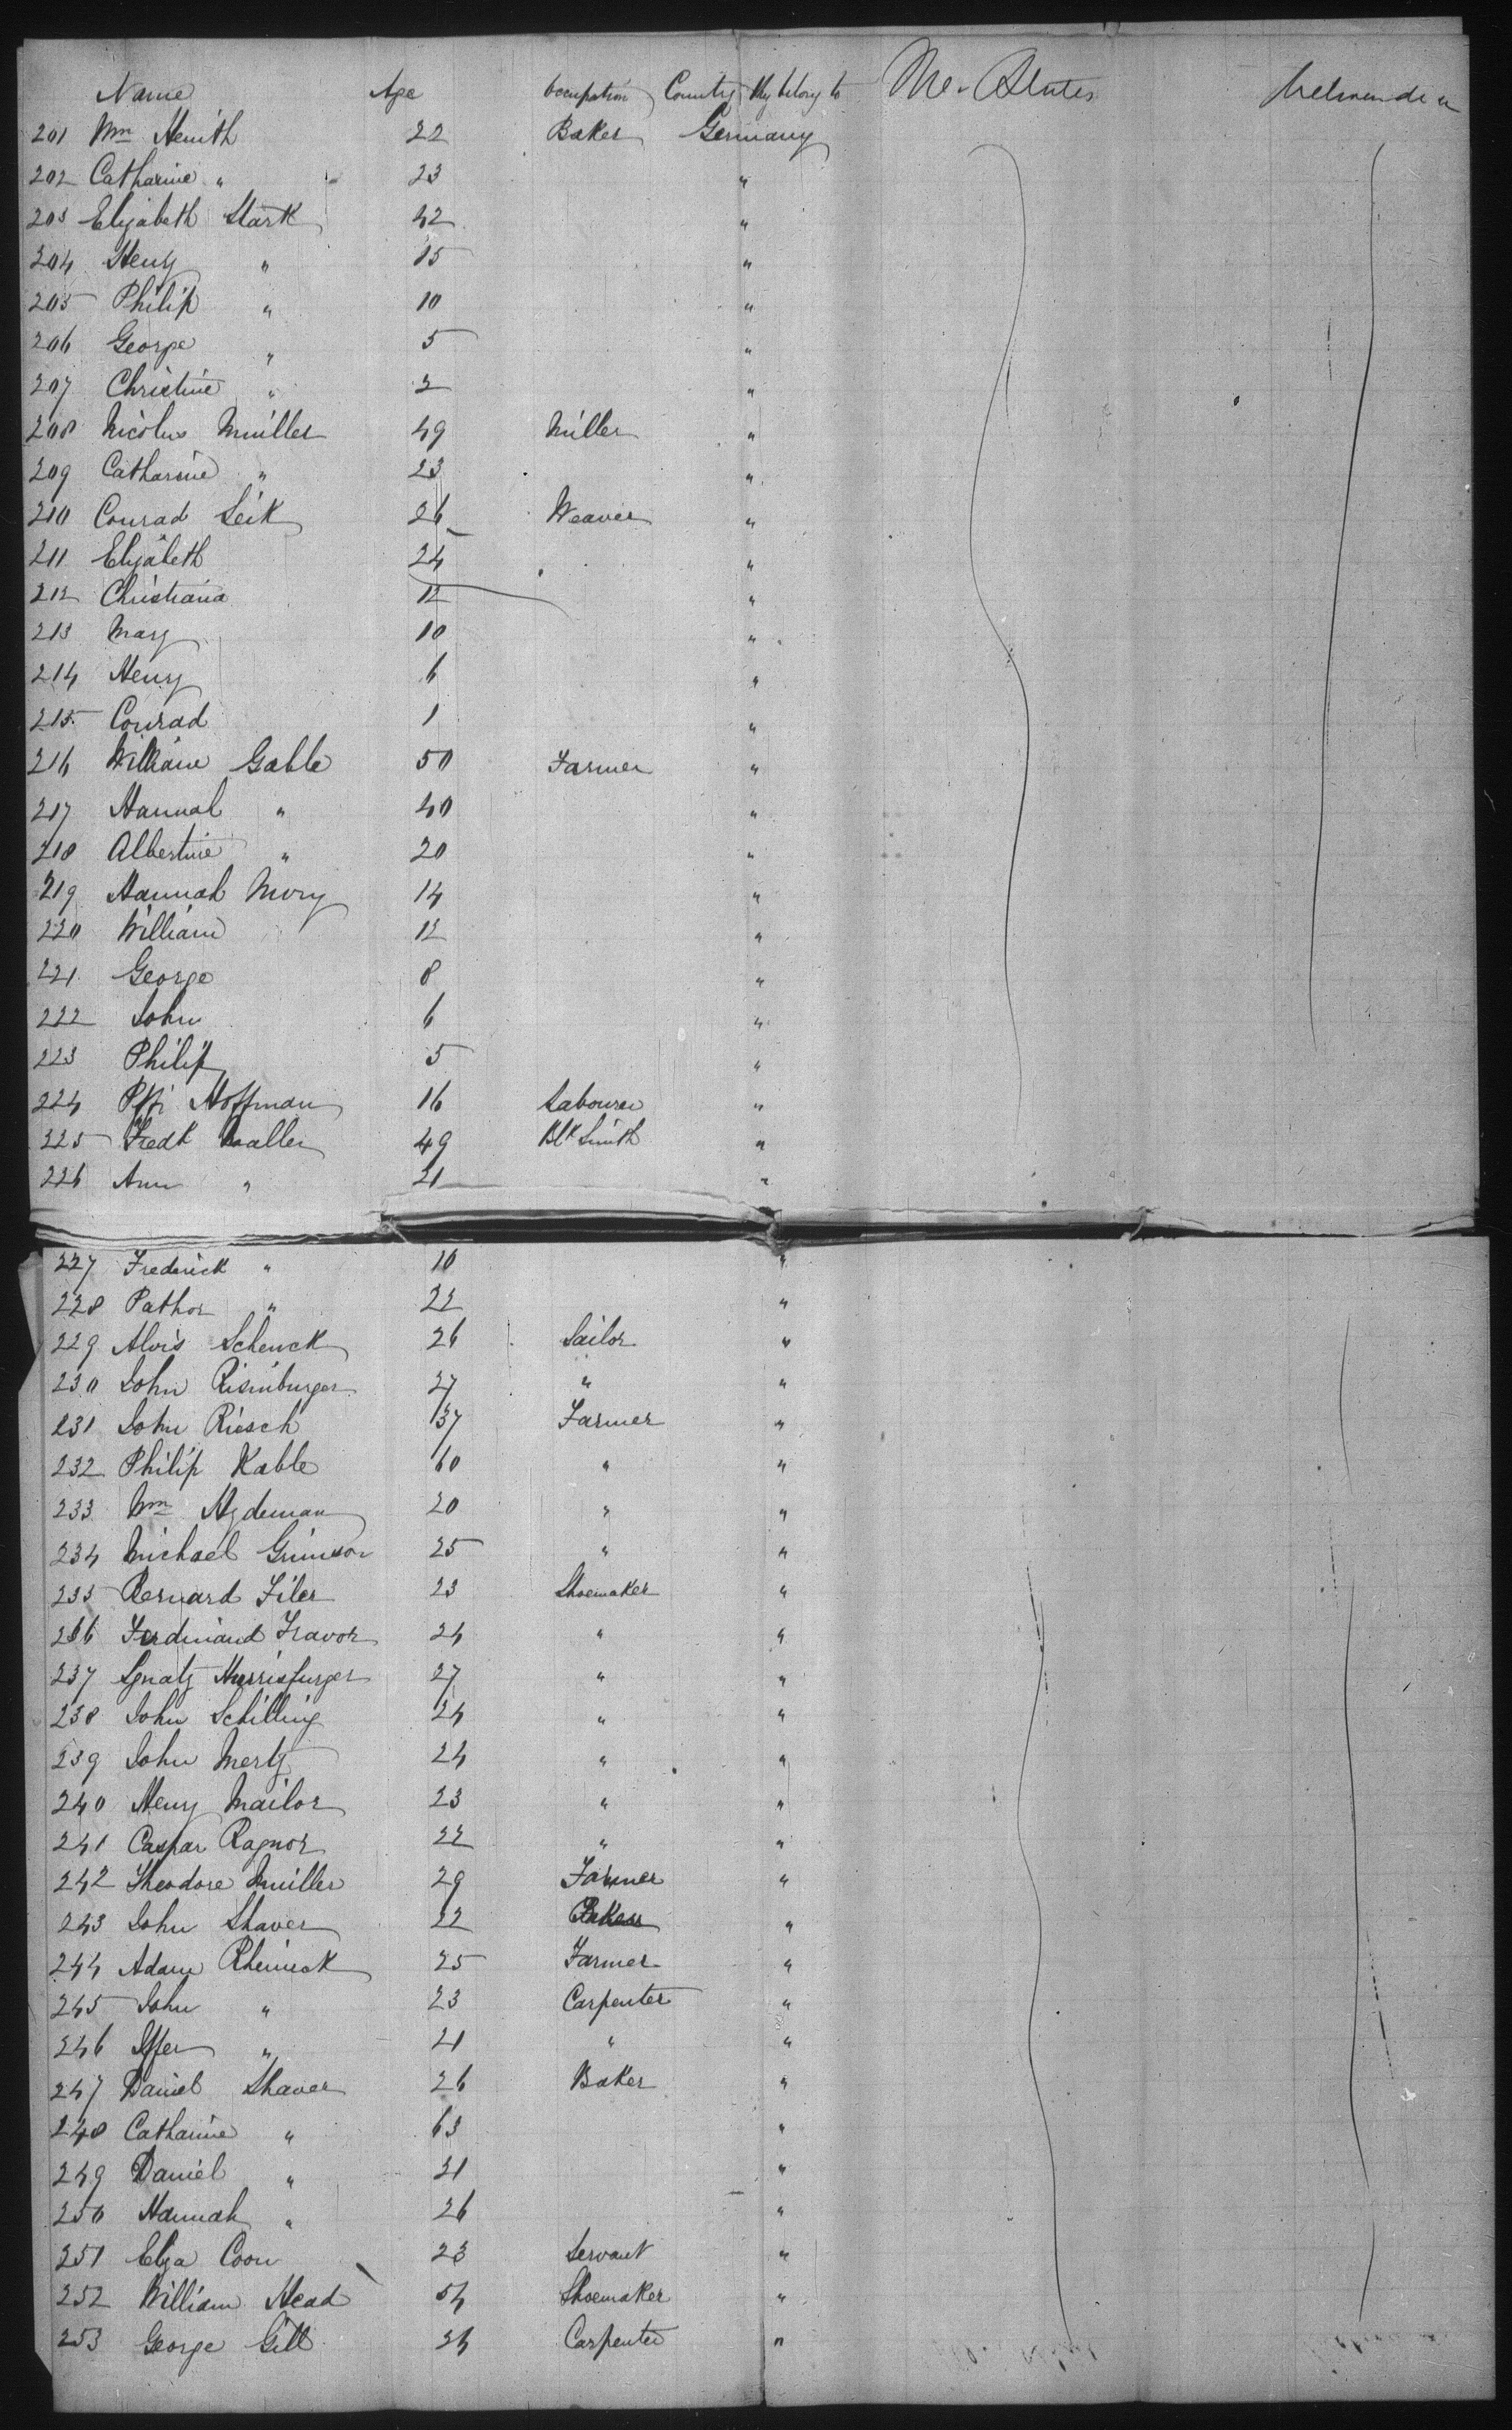 Name Age Occupation Country they belong to
201 Wm Henith 22 Baker Germany
202 Catharine " 23 "
203 Elizabeth Stark 42 "
204 Henry " 15 "
205 Philip " 10 "
206 George " 5 "
207 Christine " 2 "
208 Nicolus Muiller 49 Miller "
209 Catharine " 23 "
210 Conrad Leik 26 Weaver "
211 Elizabeth 24 "
212 Christiana 12 "
213 Mary 10 "
214 Henry 6 "
215 Conrad 1 "
216 William Gable 50 Farmer "
217 Hannah " 40 "
218 Albertine " 20 "
219 Hannah Mory 14 "
220 William 12 "
221 George 8 "
222 John 6 "
223 Philip 5 "
224 Hoffman 16 Labourer "
225 Fredk Waller 49 Blk Smith "
226 Ann " 21 "
227 Frederick " 10 "
228 Pathor " 22 "
229 Alois Schenck 26 Sailor "
230 John Risinburger 27 " "
231 John Riesch 37 Farmer "
232 Philip Kable 60 " "
233 Wm Hydeman 20 " "
234 Michael 25 " "
235 Bernard Filer 23 Shoemaker "
236 Ferdinand Travor 24 " "
237 Ignatz 27 " "
238 John Schilling 24 " "
239 John Mertz 24 " "
240 Henry Mailor 23 " "
241 Caspar Ragnor 22 " "
242 Theodore Muiller 29 Farmer "
243 John Shaver 22 Baker "
244 Adam Rheineck 25 Farmer "
245 John " 23 Carpenter "
246 " 21 " "
247 Daniel Shaver 26 Baker "
248 Catharine " 63 "
249 Daniel " 21 "
250 Hannah " 26 "
251 Eliza Coon 23 Servant "
252 William Head 54 Shoemaker "
253 George Gill 24 Carpenter "